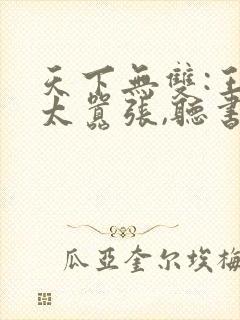 天下無雙:王
太囂張,聽書
瓜亞奎尔埃梅